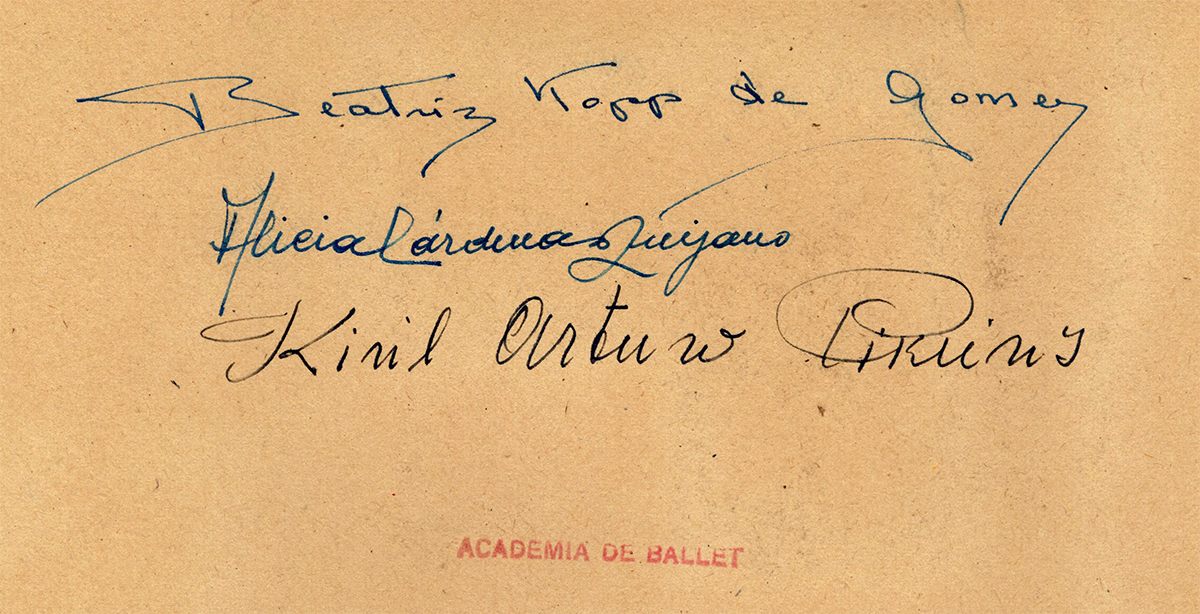 Beatriz Kopp de Gomez
Alicia Cárdenas Quijano
Kiril Arturo Pikieris
ACADEMIA DE BALLET